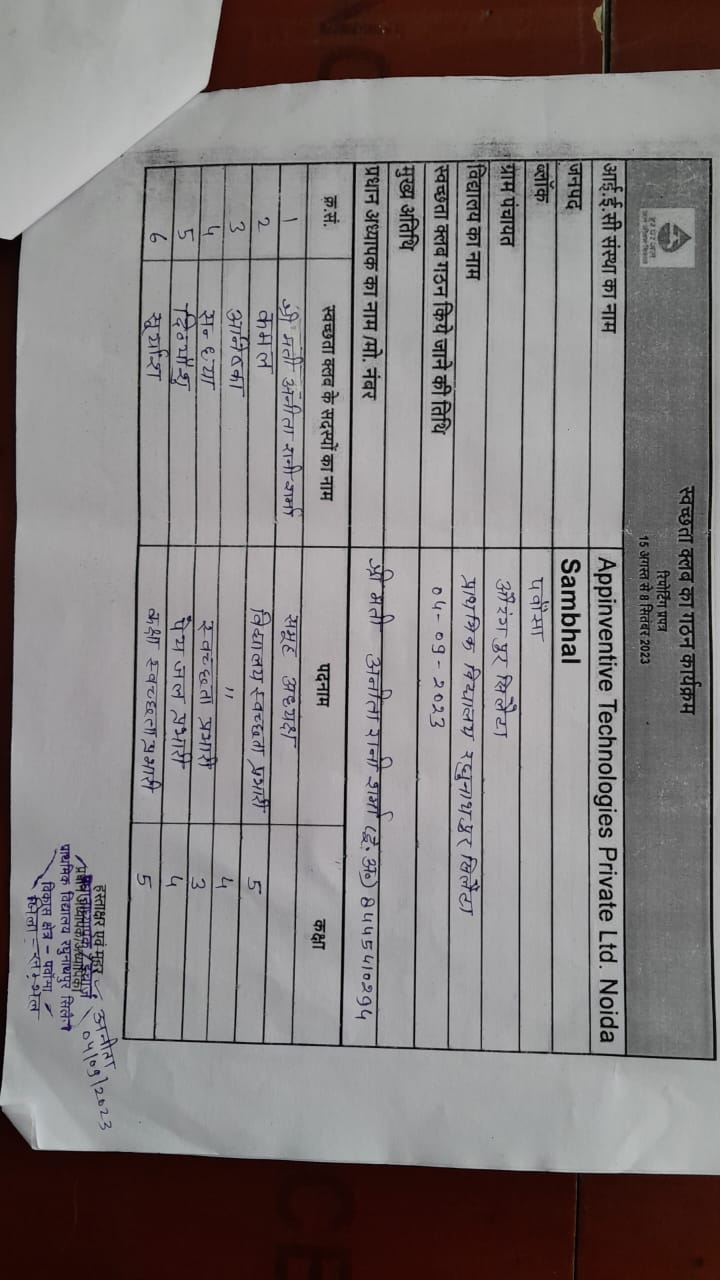 स्वच्छता क्लब का गठन कार्यक्रम
रिपोर्टिंग प्रपत्र
15 अगस्त से 8 सितंबर 2023
आई.ई.सी संस्था का नाम Appinventive Technologies Private Ltd. Noida
जनपद Sambhal
ब्लॉक पवाँसा
ग्राम पंचायत औरंगपुर सिलैटा
विद्यालय का नाम प्राथमिक विद्यालय रघुनाथपुर सिलैटा
स्वच्छता क्लब गठन किये जाने की तिथि 04-09-2023
मुख्य अतिथि
प्रधान अध्यापक का नाम /मो. नंबर श्री मती अनीता रानी शर्मा (इं. अ०) 8445410294
क्र.सं. स्वच्छता क्लब के सदस्यों का नाम पदनाम कक्षा
1 श्री मती अनीता रानी शर्मा समूह अध्यक्षा
2 कमल विद्यालय स्वच्छता प्रभारी 5
3 " 4
4 सन्ध्या स्वच्छता प्रभारी 3
5 दिव्यांशु पेय जल प्रभारी 4
6 कक्षा स्वच्छता प्रभारी 5
हस्ताक्षर एवं मुहर अनीता
04/09/2023
प्राथमिक विद्यालय रघुनाथपुर
विकास क्षेत्र - पवांसा
जिला - सम्भल